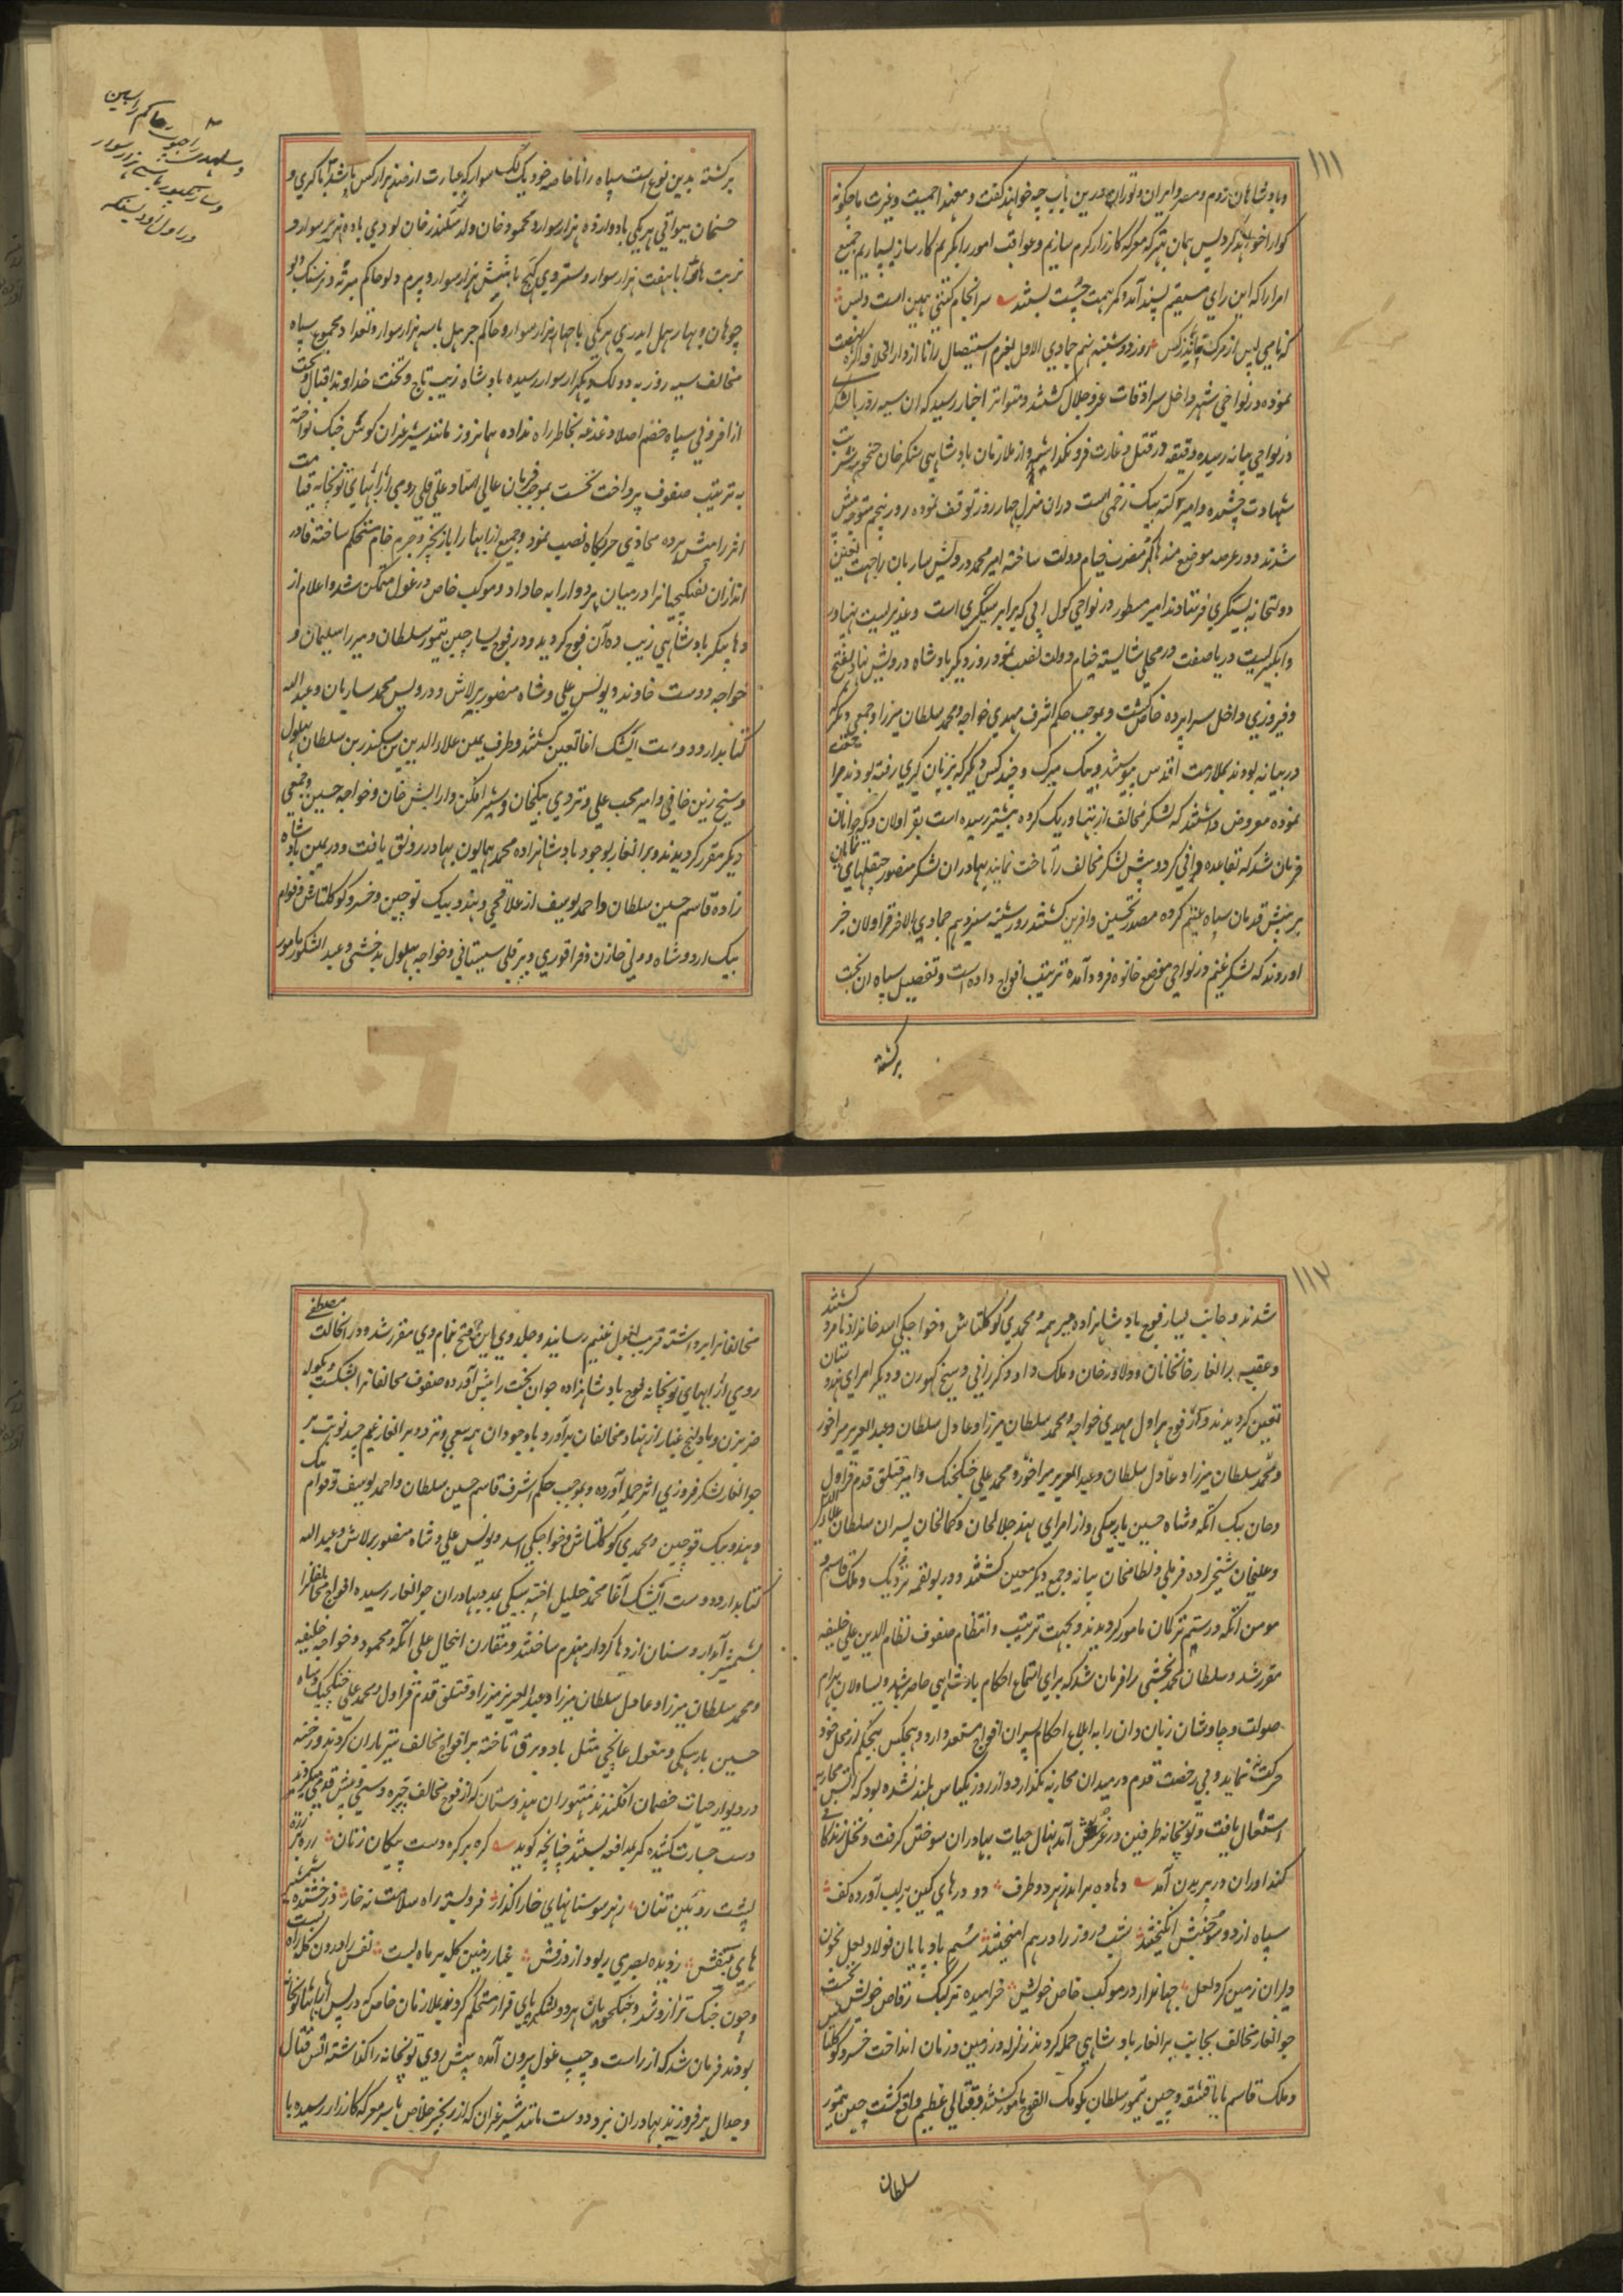 ١١١
وبادشاهان روم ومصر وایران وتوران درین باب چه خواهند گفت ومعهذا حمیت وغیرت ما چگونه
گوارا خواهد کرد پس همان بهتر که معرکه کارزار گرم سازیم وعواقب امور را بکریم کارساز بسپاریم جمیع
امرا را که این رای مستقیم پسند آمده کمر همت چست بستند سرانجام گیتی همین است وبس
که نامی پس از مرگ ماند ز کس روز دوشنبه نهم جمادی الاول بعزم استیصال رانا از دار الخلافه اگره نهضت
نموده در نواحی شهر داخل سرادقات عز وجلال گشتند ومتواتر اخبار رسید که ان سیه روز با لشکر
در نواحی بیانه رسیده دقیقه در قتل وغارت فرو نگذاشته واز ملازمان بادشاهی سنکرخان جنجوهه شربت
شهادت چشیده وامیر کته بیک زخمی است دران منزل چهار روز توقف نموده روز پنجم متوجه پیش
شدند ودر عرصه موضع منداکر مضرب خیام دولت ساخته امیر محمد درویش ساربان را جهت تعین
دولتخانه بسیکری فرستادند امیر مسطور در نواحی کول ابی که برابر سیکری است وغدیریست پهناور
وابگیریست دریا صفت در محلی شایسته خیام دولت نصب نمود روز دیگر بادشاه درویش نهاد بفتح
وفیروزی داخل سراپرده خاص گشت وبموجب حکم اشرف مهدی خواجه ومحمد سلطان میرزا وجمعی دیگر که
در بیانه بودند بملازمت اقدس پیوستند وبیک میرک وچند کس دیگر که بزبان گیری رفته بودند مراجعت
نموده معروض داشتند که لشکر مخالف از بساور یک کروه پیشتر رسیده است بقراولان ویکه جوانان
فرمان شد که بقاعده وافی گرد وپیش لشکر مخالف را تاخت نمایند بهادران لشکر منصور چپقلشهای نمایان
بر پیش قدمان سپاه غنیم کرده مصدر تحسین وافرین گشتند روز شنبه سیزدهم جمادی الاخر قراولان خبر
اوردند که لشکر غنیم در نواحی موضع خانوه فرود آمده ترتیب افواج داده است وتفصیل سپاه ان بخت
برگشته
برگشته بدین نوع است سپاه رانا خاصه خود یک لک سوار که عبارت از صد هزار کس باشد باکری و
حسنخان میواتی هریکی با دوازده هزار سوار ومحمود خان ولد سکندر خان لودی با ده هزار سوار و
نربت هاڈا با هفت هزار سوار وستروی کچی با شش هزار سوار وپرم دلو حاکم میرته ونرسنگ دیو
چوهان وبهارهمل ایدری هریکی با چهار هزار سوار وحاکم جرهل با سه هزار سوار وتعداد مجموع سپاه
مخالف سیه روز به دو لک ویکهزار سوار رسیده بادشاه زیب تاج وتخت خداوند اقبال وبخت
از افزونی سپاه خصم اصلا دغدغه بخاطر راه نداده همانروز مانند شیر غران کوس جنگ نواخته
به ترتیب صفوف پرداخت نخست بموجب فرمان عالی استاد علی قلی رومی ارابهای توپخانه قیامت
اثر را پیش برده محاذی حربگاه نصب نمود وجمیع ارابها را بازنجیر وچرم خام مستحکم ساخته قادر
اندازان تفنگچیانرا در میان هر دو ارابه جا داد وموکب خاص در غول متمکن شد واعلام از
دها پیکر بادشاهی زیب ده آن فوج گردید ودر فوج یسار چین تیمور سلطان ومیرزا سلیمان و
خواجه دوست خاوند ویونس علی وشاه منصور برلاس ودرویش محمد ساربان وعبد الله
کتابدار ودوست ایشک اقا تعین گشتند وطرف یمین علاء الدین بن سکندر بن سلطان بهلول
وشیخ زین خافی وامیر محب علی وتردی بیکخان وشیر افکن وارایش خان وخواجه حسین وجمعی
دیگر مقرر گردیدند وبرانغار بوجود بادشاهزاده محمد همایون بهادر رونق یافت ودر یمین بادشاه
زاده قاسم حسین سلطان واحمد یوسف اوغلاقچی وهندو بیک قوچین وخسرو کوکلتاش وقوام
بیک اردو شاه وولی خازن وقراقوزی وپیر قلی سیستانی وخواجه پهلول بدخشی وعبد الشکور مامور
راجپوت حاکم رایسین
وسلهدی
هزار سوار
وراول اودیسنگه
١١٢
شدند وجانب یسار فوج بادشاهزاده میر همه ومحمدی کوکلتاش وخواجگی اسد خاندار نامزد گشتند
وعقب برانغار خانخانان ودلاور خان وملک داد وکررانی وشیخ کهورن ودیگر امرای هندوستان
تعین گردیدند وکار فوج هراول مهدی خواجه ومحمد سلطان میرزا وعادل سلطان وعبد العزیز میر اخور
ومحمد سلطان میرزا وعادل سلطان وعبد العزیز میر اخور ومحمد علی خنکخنک وامیر قتلق قدم قراول
وجان بیک اتکه وشاه حسین باربیکی واز امرای هند جلالخان وکمالخان پسران سلطان علاء الدین
وعلیخان شیخزاده فرملی ونظامخان بیانه وجمع دیگر معین گشتند ودر تولقمه تردیک وملک قاسم و
مومن اتکه ورستم ترکمان مامور گردیدند وبجهت ترتیب وانتظام صفوف نظام الدین علی خلیفه
مقرر شد وسلطان محمد بخشی را فرمان شد که برای استماع احکام بادشاهی حاضر باشد ویساولان بهرام
صولت وچاوشان زبان دان را به ابلاغ احکام بسران افواج مستعد دارد وهیچکس بیحکم از محل خود
حرکت ننماید وبی رخصت قدم در میدان محاربه نگذارد واز روز یکپاس بلند نشده بود که اتش محاربه
اشتعال یافت وتوپخانه طرفین در غرش آمد نهال حیات بهادران سوختن گرفت ونخل زندگانی
کنداوران در بریدن آمد دهاده برامد ز هر دو طرف دو دریای کین بر لب آورده کف
سپاه از دو سو جنبش انگیختند شب وروز را در هم امیختند سم باد پایان فولاد لعل بخون
دلیران زمین کرد لعل جهاندار در موکب خاص خویش خرامیده ترکتک رقاص خویش نخست
جوانغار مخالف بجانب برانغار بادشاهی حمله کردند زلزله در زمین وزمان انداخت خسرو کوکلتاش
وملک قاسم بابا قشقه وچین تیمور سلطان بکومک الفوج مامور گشتند وقتالی عظیم واقع گشت چین تیمور
سلطان
مخالفانرا برداشته قریب بغول غنیم رسانید وجلدوی این فتح بنام وی مقرر شد ودر انحالت مصطفی
رومی ارابهای توپخانه فوج بادشاهزاده جوان بخت را پیش آورده صفوف مخالفانرا بشکست وبگوله
ضربزن وبادلیج غبار از نهاد مخالفان برآورد باوجود ان همه سعی وتردد برانغار غنیم چند نوبت بر
جوانغار لشکر فیروزی اثر حمله آورده وبموجب حکم اشرف قاسم حسین سلطان واحمد یوسف وقوام بیک
وهندو بیک قوچین ومحمدی کوکلتاش وخواجگی اسد ویونس علی وشاه منصور برلاس وعبد الله
کتابدار ودوست ایشک آغا محمد خلیل اخته بیگی بمدد بهادران جوانغار رسیده افواج مخالفانرا
بشمشیر آبدار وسنان اژدها کردار منهزم ساختند ومقارن اینحال علی اتکه ومحمود وخواجه خلیفه
ومحمد سلطان میرزا وعادل سلطان میرزا وعبد العزیز میرزا وقتلق قدم قراول ومحمد علی خنکجنک وشاه
حسین باربیکی ومغول غانچی مثل باد وبرق تاخته بر افواج مخالف تیر باران کردند ورخنه
در دیوار حیات خصمان افگندند متهوران هندوستان که از فوج مخالف چیره دستی وپیش قدمی میکردند
دست جسارت کشیده کمر بمدافعه بستند چنانچه گوید گره بر گره دست پیکان زنان زره بر زره
پشت رویین تنان ز هر سو سنانهای خارا گذار فرو بسته راه سلامت نه خار درخشنده شمشیر
های بنفش ز دیده بصر می ربود از درفش غبار زمین کله بر ماه بست نفس را درون گلو راه بست
وچون جنگ ترازو شد وجنگجویان هر دو لشکر پای قرار مستحکم کردند ملازمان خاص که در پس ارابهای توپخانه
بودند فرمان شد که از راست وچپ غول بیرون آمده پیش روی توپخانه را گذاشته اتش قتال
وجدال بر فروزند بهادران نبرد دوست مانند شیر غران که از زنجیر خلاص یابد بمعرکه کارزار رسیده با